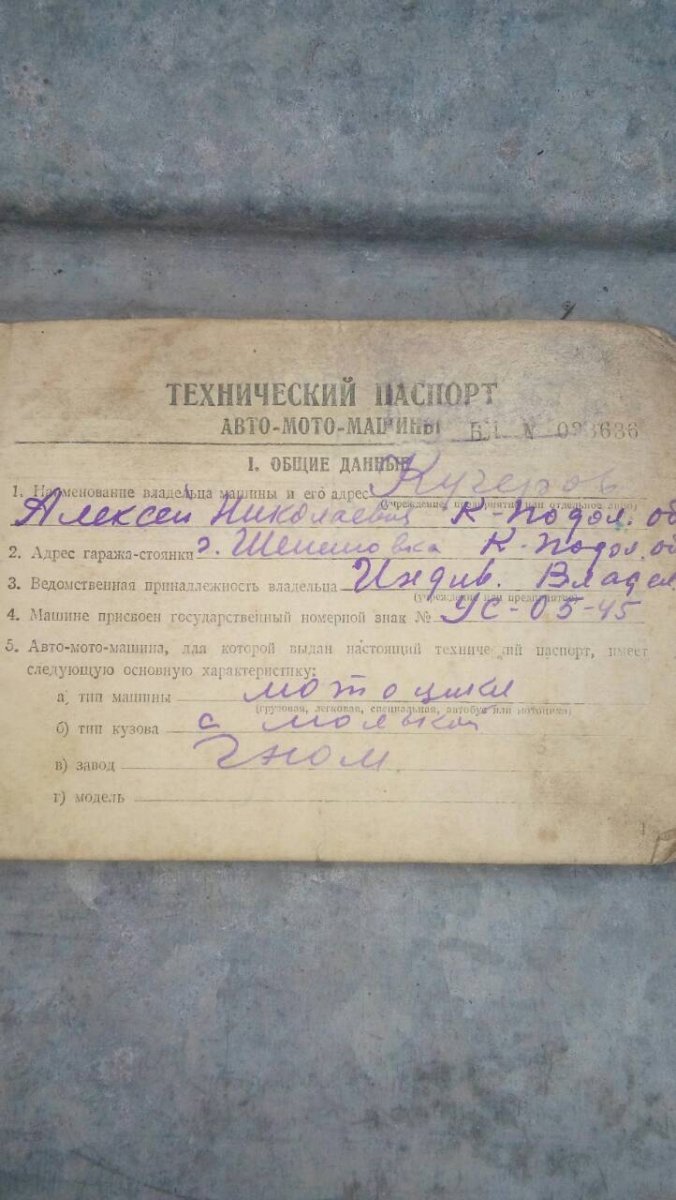 ТЕХНИЧЕСКИЙ ПАСПОРТ
АВТО-МОТО-МАШИНЫ БЛ №
I. ОБЩИЕ ДАННЫЕ
1. Наименование владельца машины и его адрес Кучеров
(учреждение, предприятие или отдельное лицо)
Алексей Николаевич К-Подол. об
2. Адрес гаража-стоянки г. Шепетовка К-Подол. об
3. Ведомственная принадлежность владельца Индив. Владел
(учреждение или предприятие)
4. Машине присвоен государственный номерной знак № УС-05-45
5. Авто-мото-машина, для которой выдан настоящий технический паспорт, имеет
следующую основную характеристику:
а) тип машины мотоцикл
(грузовая, легковая, специальная, автобус или мотоцикл)
б) тип кузова с
в) завод Гном
г) модель
1